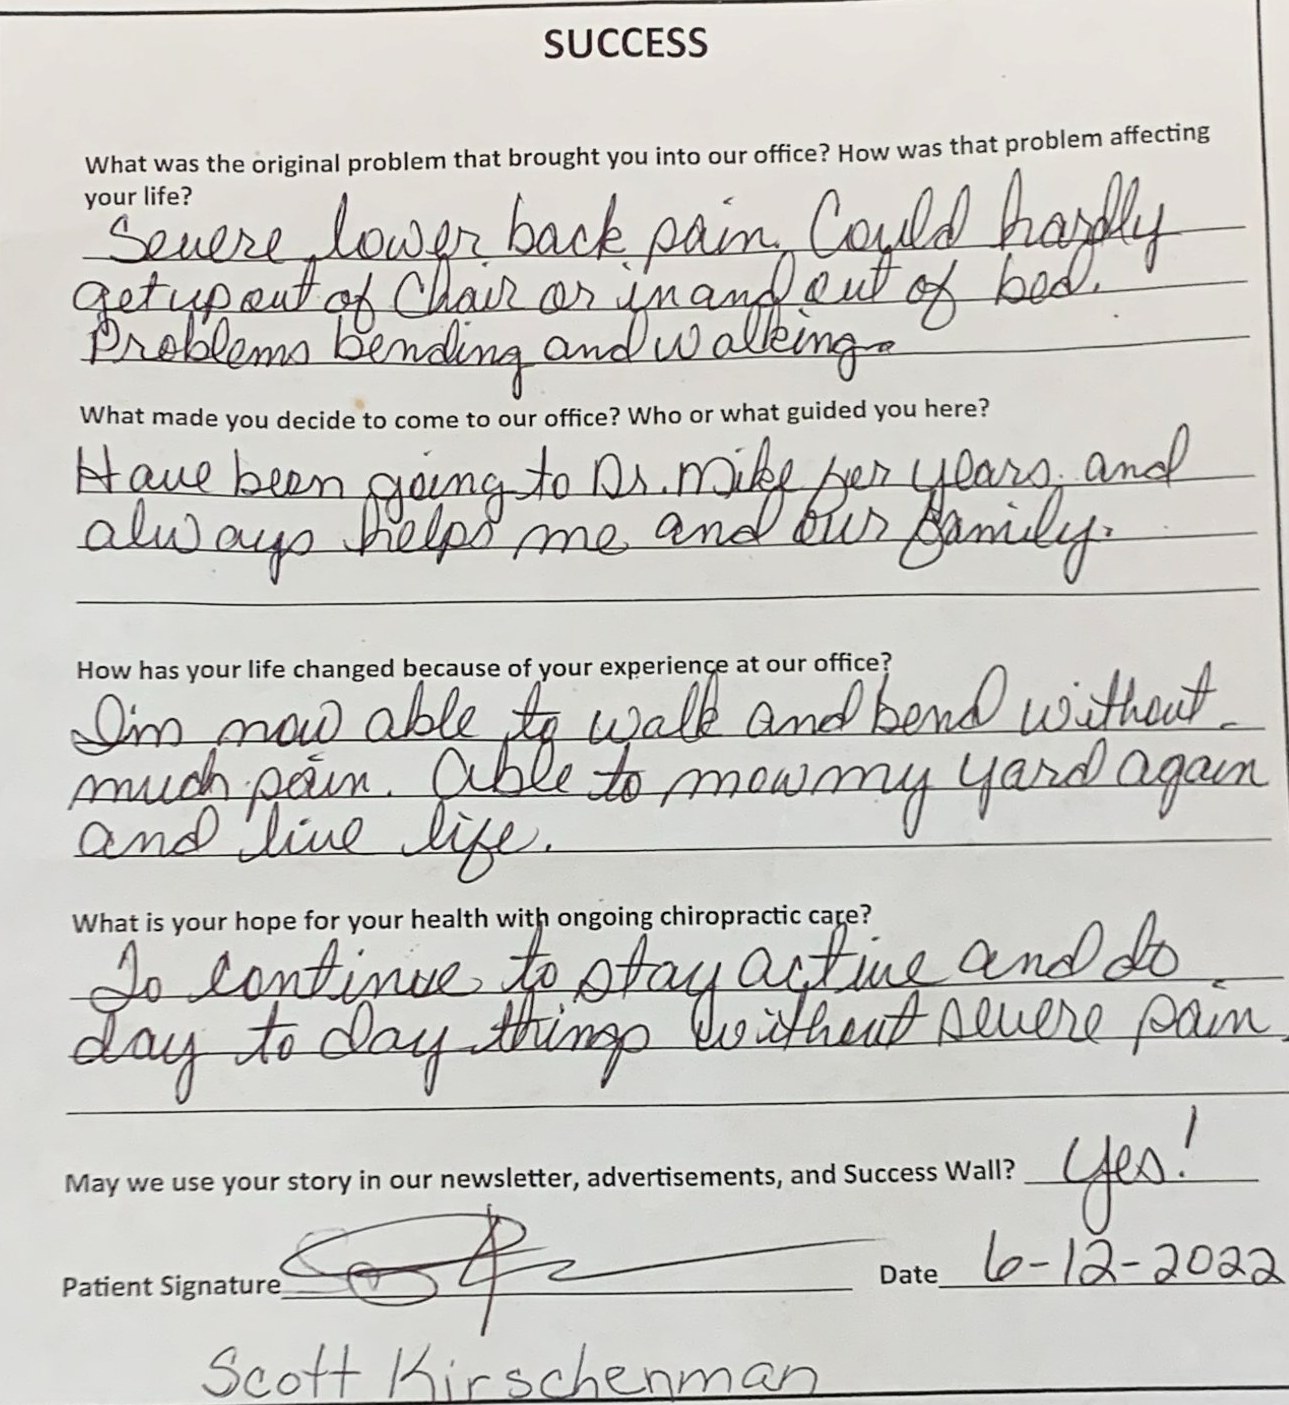 SUCCESS
What was the original problem that brought you into our office? How was that problem affecting
your life?
Severe lower back pain. Could hardly
get up out of Chair or in and out of bed.
Problems bending and walking.
What made you decide to come to our office? Who or what guided you here?
Have been going to Dr. Mike for years. and
always helps me and our family.
How has your life changed because of your experience at our office?
I'm now able to walk and bend without
much pain. Able to mow my yard again
and live life.
What is your hope for your health with ongoing chiropractic care?
To continue to stay active and do
day to day things without severe pain
May we use your story in our newsletter, advertisements, and Success Wall? Yes!
Patient Signature Date 6-12-2022
Scott Kirschenman